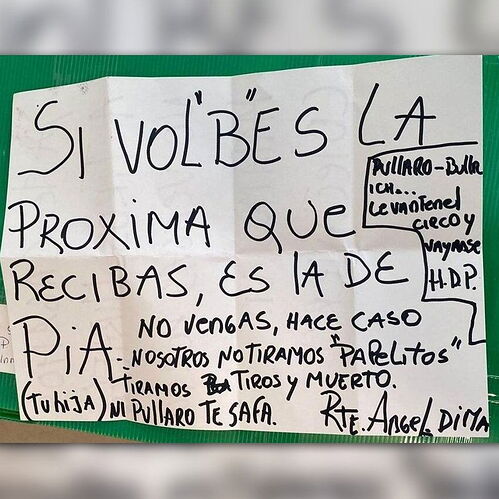 SI VOL"B"ES LA
PROXIMA QUE
RECIBAS, ES LA DE
PIA.
(Tu hija)
NO VENGAS, HACE CASO
NOSOTROS NO TIRAMOS "PAPELITOS"
TIRAMOS TIROS Y MUERTO.
NI PULLARO TE SAFA.
RTE. ANGEL DIMA
PULLARO-Bulla
ICH...
LEVANTEN el
CIRCO Y
VAYASE
H.D.P.